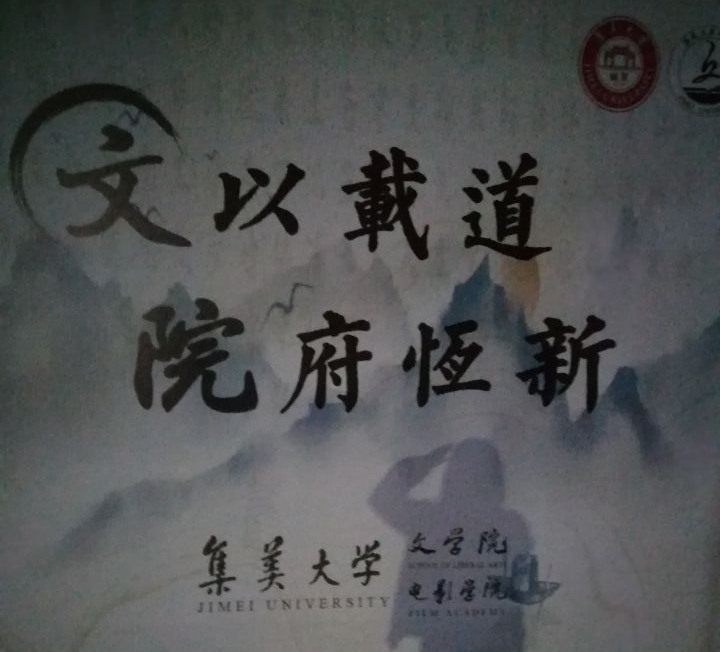 文以載道
院府恆新
集美大学
JIMEI UNIVERSITY
文学院
SCHOOL OF LIBERAL ARTS
电影学院
FILM ACADEMY